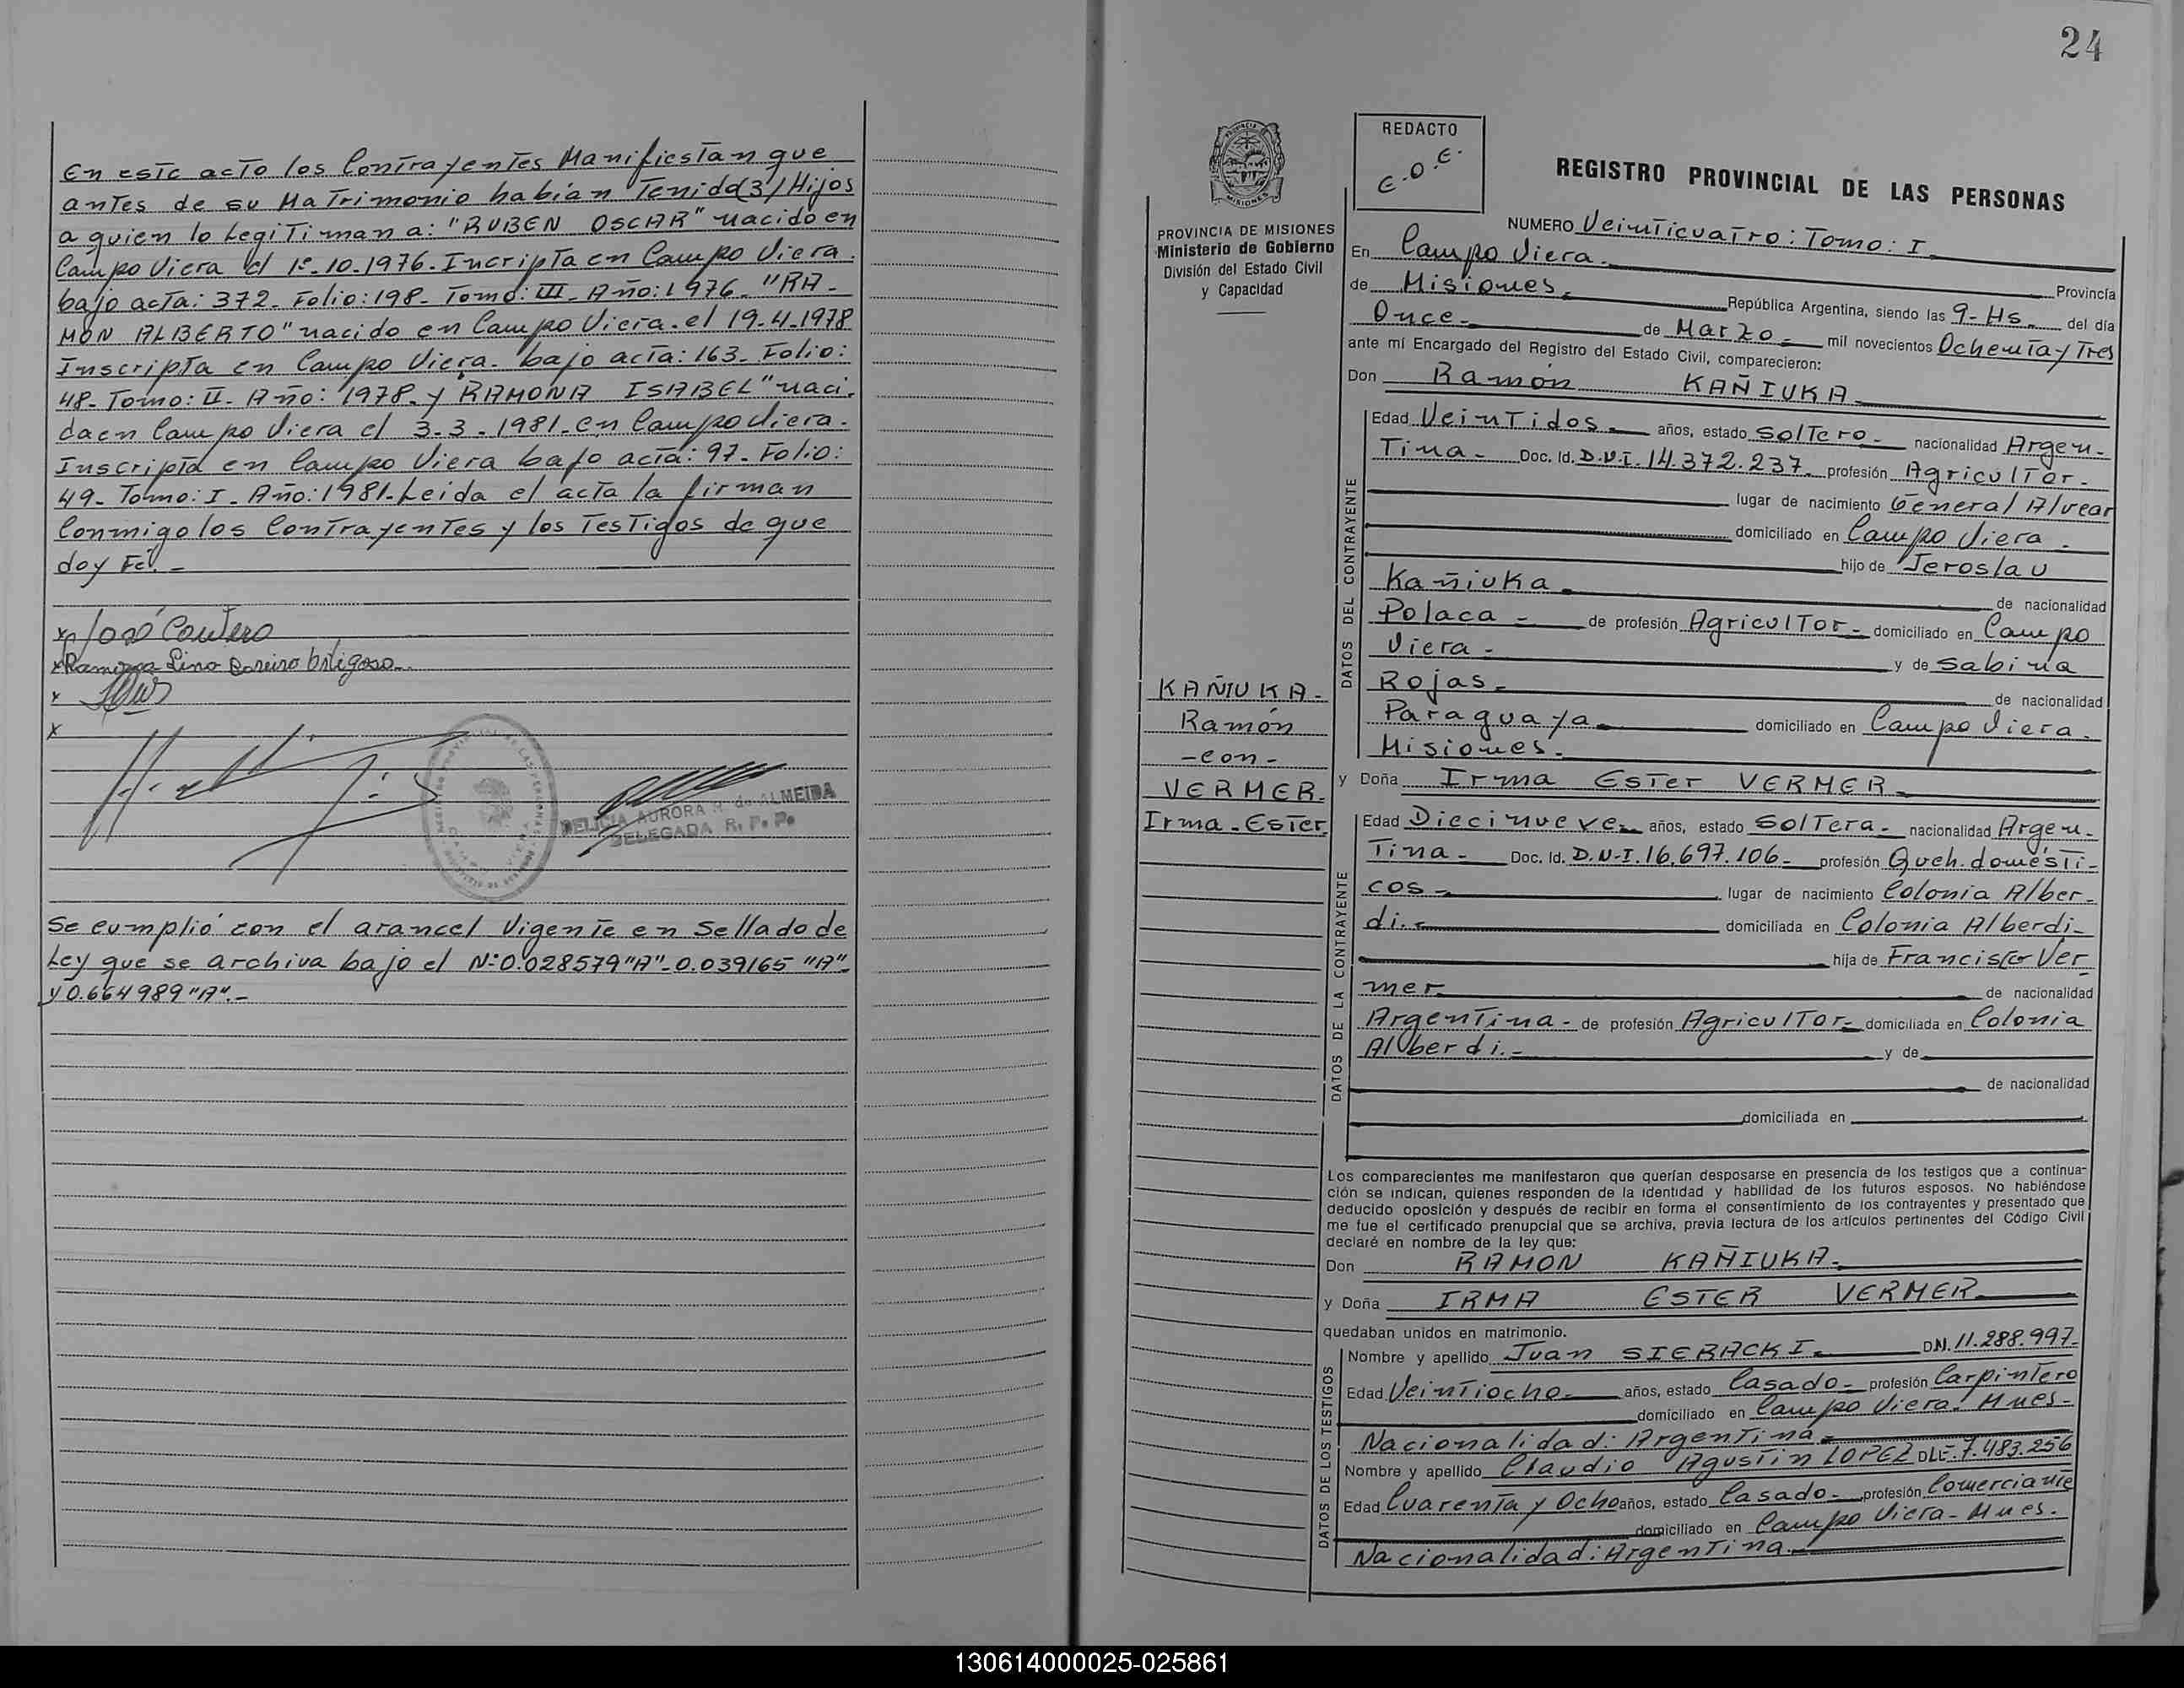 En este acto los Contrayentes Manifiestan que
antes de su Matrimonio habían Tenido (3) Hijos
a quien lo Legitiman a: "RUBEN OSCAR" nacido en
Campo Viera el 1º-10-1976. Incripta en Campo Viera.
bajo acta: 372- Folio: 198- Tomo: III- Año: 1976- "RA-
MON ALBERTO" nacido en Campo Viera. el 19-4-1978
Inscripta en Campo Viera. bajo acta: 163- Folio:
48- Tomo: II- Año: 1978- y RAMONA ISABEL" naci.
da en Campo Viera el 3-3-1981- en Campo Viera.
Inscripta en Campo Viera bajo acta: 97- Folio:
49- Tomo: I- Año: 1981- Leida el acta la firman
Conmigo los Contrayentes y los Testigos de que
doy Fé.-
x José
x Ramona Lino
x
x
DELICIA AURORA M. de ALMEIDA
DELEGADA R. P. P.
Se cumplió con el arancel Vigente en Sellado de
Ley que se archiva bajo el Nº 0.028579 "A"- 0.039165 "A"-
y 0.664989 "A".-
24
REDACTO
C.O.E.
REGISTRO PROVINCIAL DE LAS PERSONAS
PROVINCIA DE MISIONES
Ministerio de Gobierno
División del Estado Civil
y Capacidad
NUMERO Veinticuatro: Tomo: I
En Campo Viera. Provincia
de Misiones, República Argentina, siendo las 9- Hs. del día
Once- de Marzo- mil novecientos Ochenta y Tres
ante mí Encargado del Registro del Estado Civil, comparecieron:
Don Ramón KAÑIUKA
DATOS DEL CONTRAYENTE
Edad Veintidos- años, estado Soltero- nacionalidad Argen-
Tina- Doc. Id. D.N.I. 14.372.237- profesión Agricultor-
lugar de nacimiento General Alvear
domiciliado en Campo Viera.
hijo de Jeroslau
Kañiuka de nacionalidad
Polaca- de profesión Agricultor- domiciliado en Campo
Viera- y de Sabina
Rojas- de nacionalidad
Paraguaya- domiciliado en Campo Viera.
Misiones.
KAÑIUKA-
Ramón
-con-
VERMER-
Irma-Ester
y Doña Irma Ester VERMER-
DATOS DE LA CONTRAYENTE
Edad Diecinueve- años, estado Soltera- nacionalidad Argen-
Tina- Doc. Id. D.N-I. 16.697.106- profesión Queh. domésti-
cos- lugar de nacimiento Colonia Alber-
di.- domiciliada en Colonia Alberdi-
hija de Francisco Ver
mer- de nacionalidad
Argentina- de profesión Agricultor- domiciliada en Colonia
Alberdi.- y de
de nacionalidad
domiciliada en
Los comparecientes me manifestaron que querían desposarse en presencia de los testigos que a continua-
ción se indican, quienes responden de la identidad y habilidad de los futuros esposos. No habiéndose
deducido oposición y después de recibir en forma el consentimiento de los contrayentes y presentado que
me fue el certificado prenupcial que se archiva, previa lectura de los artículos pertinentes del Código Civil
declaré en nombre de la ley que:
Don RAMON KAÑIUKA-
y Doña IRMA ESTER VERMER-
quedaban unidos en matrimonio.
DATOS DE LOS TESTIGOS
Nombre y apellido Juan SIERACKI- DNI. 11.288.997-
Edad Veintiocho- años, estado Casado- profesión Carpintero
domiciliado en Campo Viera. Mnes-
Nacionalidad: Argentina-
Nombre y apellido Claudio Agustin LOPEZ DLE- 7.483.256
Edad Cuarenta y Ocho años, estado Casado- profesión Comerciante
domiciliado en Campo Viera- Mnes.
Nacionalidad: Argentina-
130614000025-025861